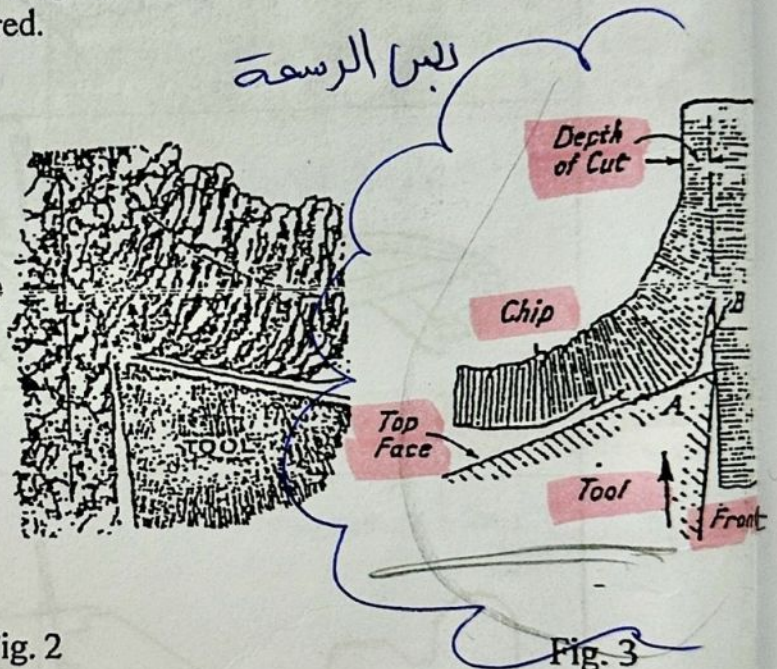 red.
بس الرسمة
Depth
of Cut
Chip
B
A
Top
Face
TOOL
Tool
Front
ig. 2
Fig. 3